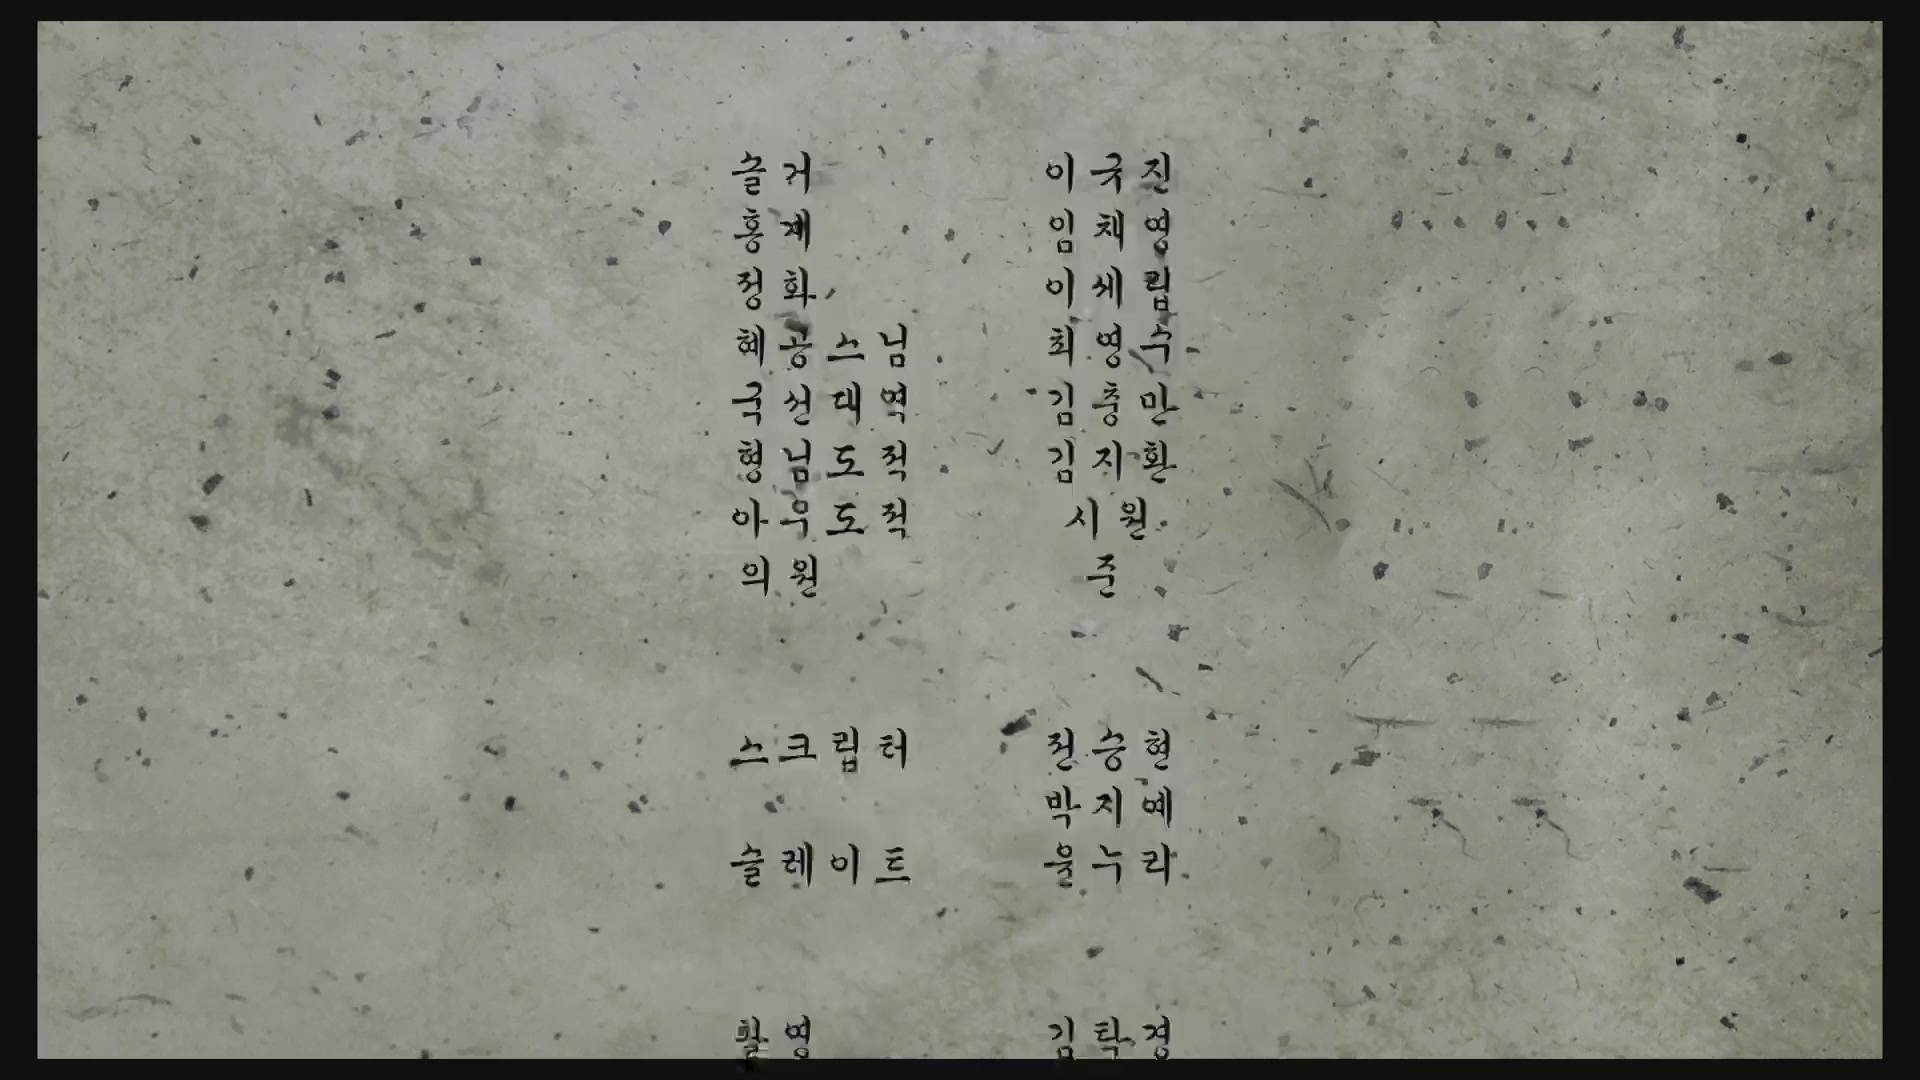 솔거 이국진
홍재 임채영
정화 이세립
혜공스님 최영수
국선대역 김충만
형님도적 김지환
아우도적 시원
의원 준
스크립터 전승현
박지예
슬레이트 윤누리
촬영 김탁경